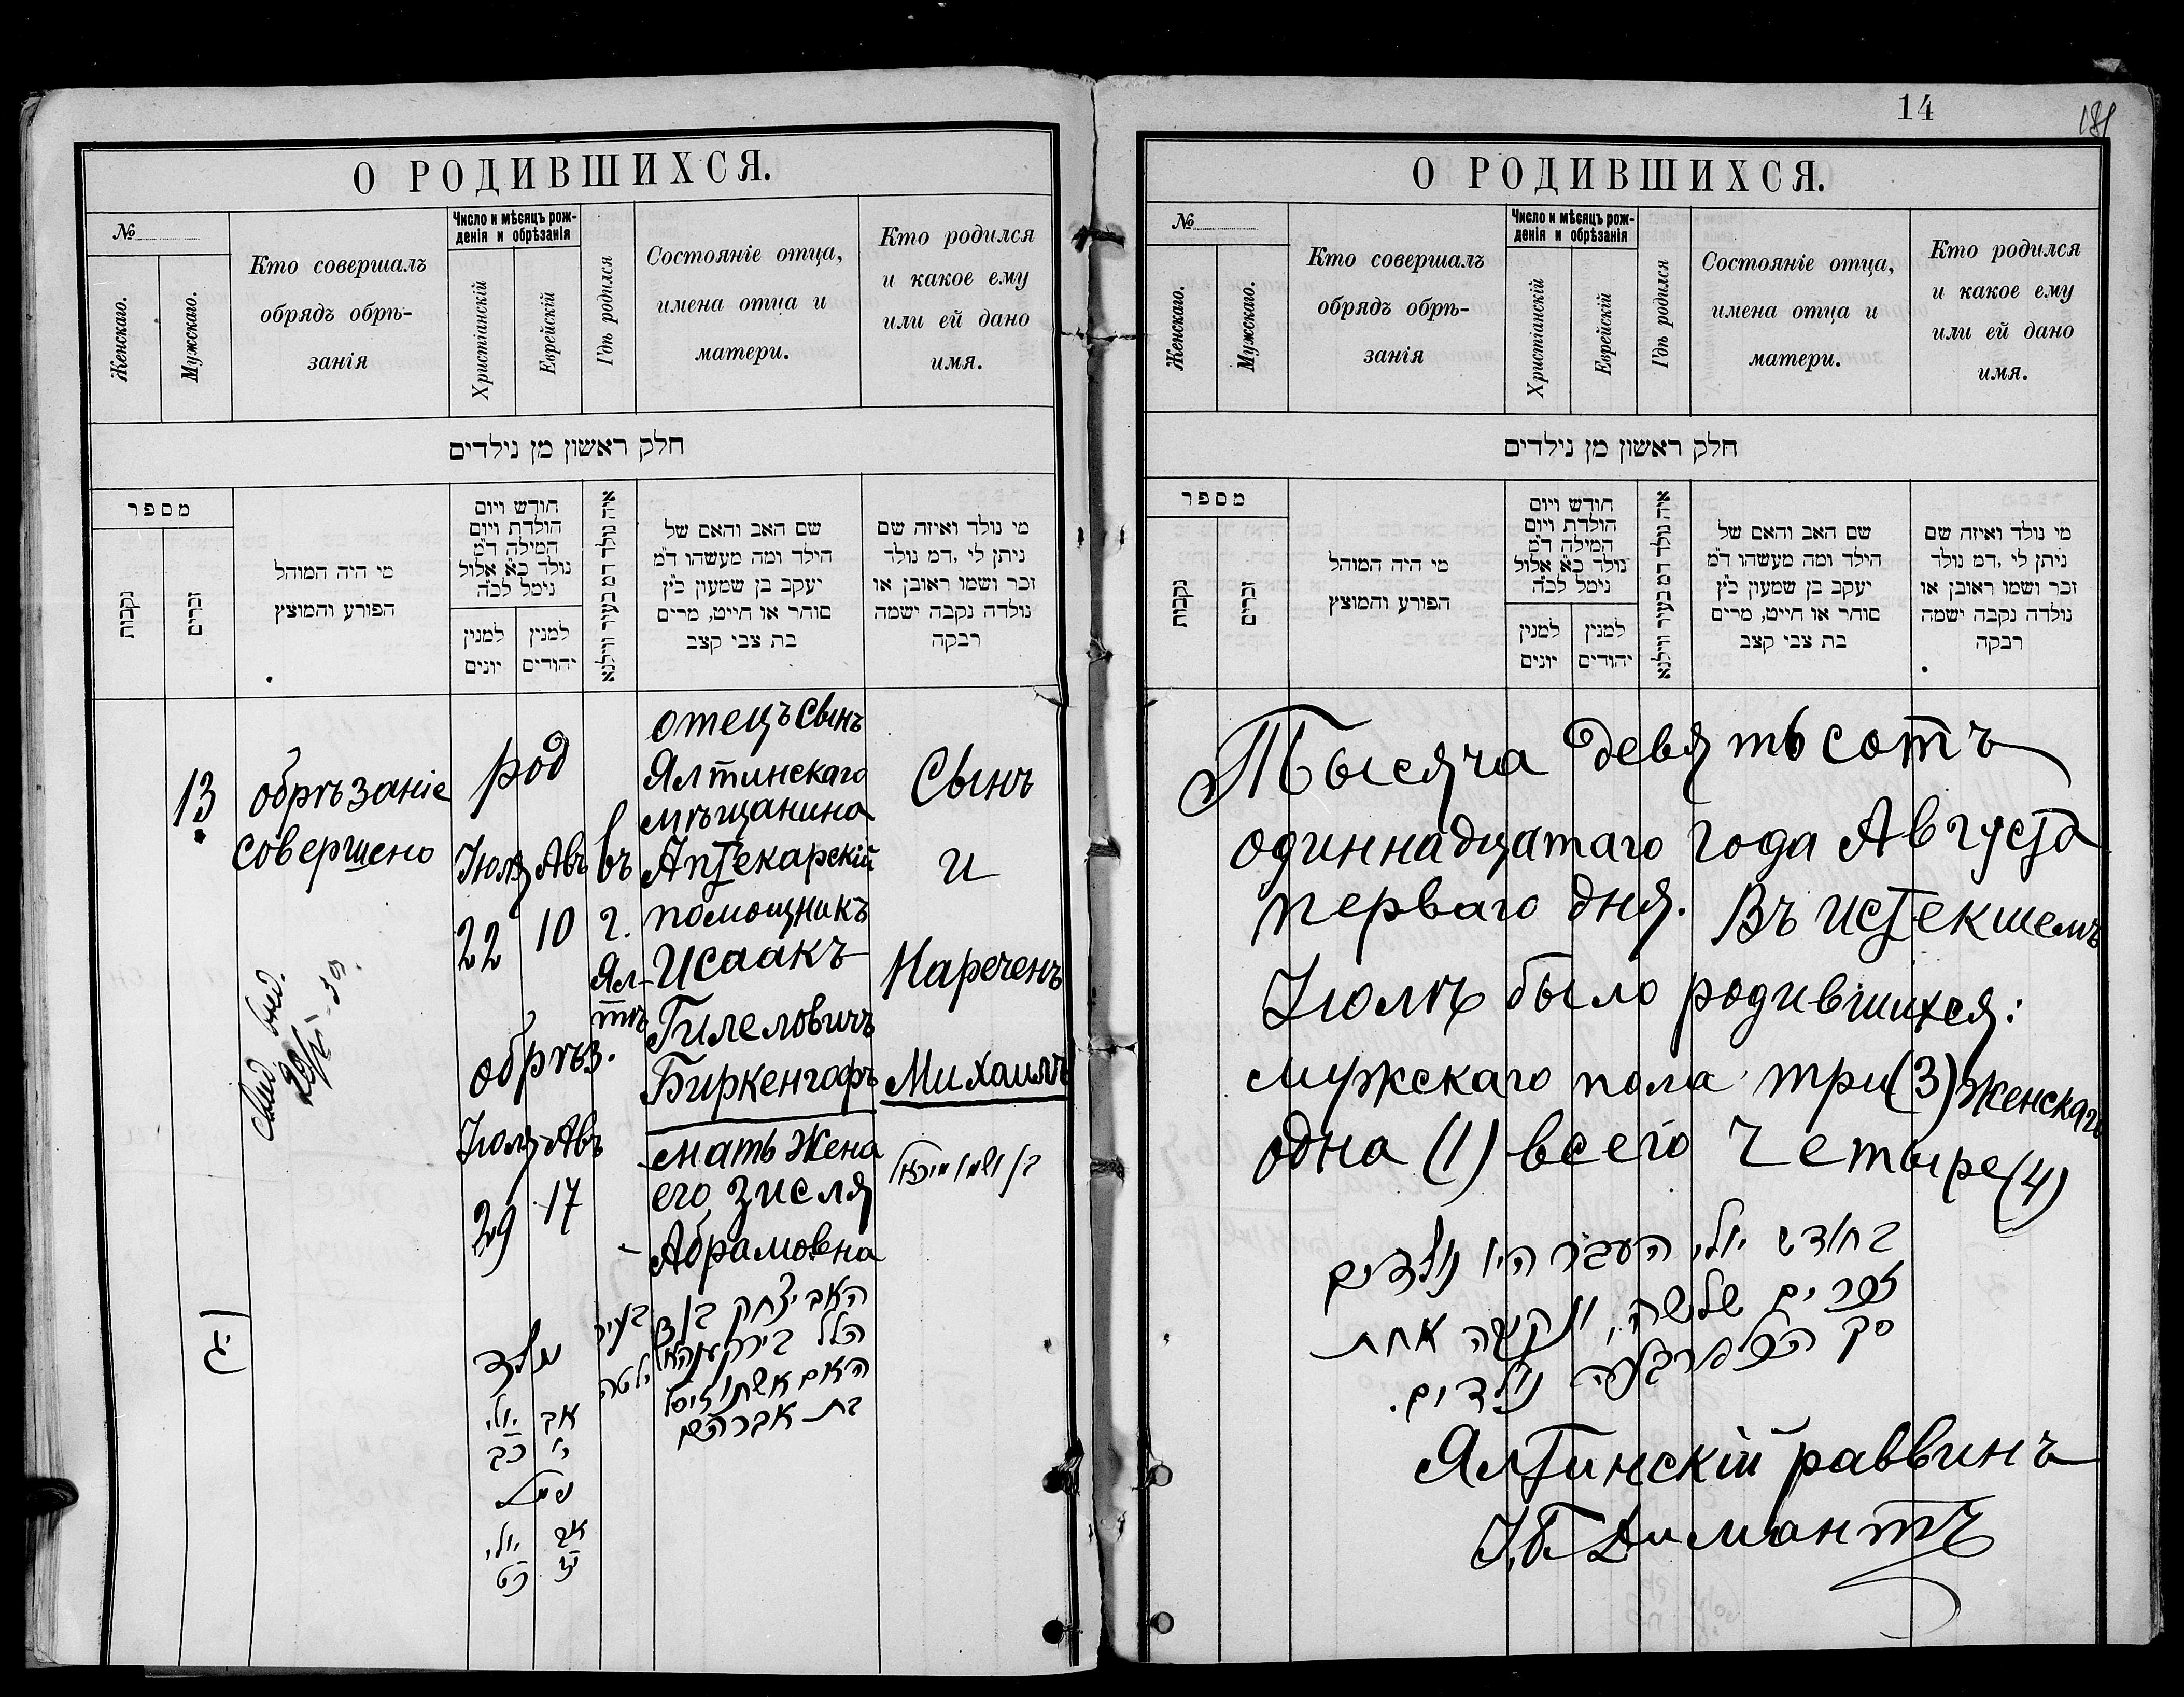 О РОДИВШИХСЯ.
№
Женскаго.
Мужскаго.
Кто совершалъ
обрядъ обрѣ-
занія
Число и мѣсяцъ рож-
денія и обрѣзанія
Христіанскій
Еврейскій
Гдѣ родился
Состояніе отца,
имена отца и
матери.
Кто родился
и какое ему
или ей дано
имя.
חלק ראשון מן נילדים
מספר
נקבות
זכרים
מי היה המוהל
הפורע והמוצץ
חודש ויום
הולדת ויום
המילה ד״מ
נולד כ״א אלול
נימל לכ״ה
למנין
יונים
למנין
יהודים
איה נולד דמ בעיר ווילנא
שם האב והאם של
הילד ומה מעשהו ד״מ
יעקב בן שמעון כ״ץ
סוחר או חייט, מרים
בת צבי קצב
מי נולד ואיזה שם
ניתן לי ,דמ נולד
זכר ושמו ראובן או
נולדה נקבה ישמה
רבקה
13
обрѣзаніе
совершено
род
Июля Авъ
22 10
обрѣз.
Июля Авъ
29 17
въ
г.
Ял-
тѣ
отецъ сынъ
Ялтинскаго
мѣщанина
Аптекарскій
помощникъ
Исаакъ
Гилеловичъ
Биркенгофъ
мать жена
его Зисля
Абрамовна
Сынъ
и
Нареченъ
Михаилъ
בן ושמו מיכאל
יג
נולד
יולי אב
כב י
נימול
יולי אב
כט יז
בעיר
ילטה
האב יצחק בן
הלל בירקענהאף
האם אשתו זיסל
בת אברהם
14
О РОДИВШИХСЯ.
№
Женскаго.
Мужскаго.
Кто совершалъ
обрядъ обрѣ-
занія
Число и мѣсяцъ рож-
денія и обрѣзанія
Христіанскій
Еврейскій
Гдѣ родился
Состояніе отца,
имена отца и
матери.
Кто родился
и какое ему
или ей дано
имя.
חלק ראשון מן נילדים
מספר
נקבות
זכרים
מי היה המוהל
הפורע והמוצץ
חודש ויום
הולדת ויום
המילה ד״מ
נולד כ״א אלול
נימל לכ״ה
למנין
יונים
למנין
יהודים
איה נולד דמ בעיר ווילנא
שם האב והאם של
הילד ומה מעשהו ד״מ
יעקב בן שמעון כ״ץ
סוחר או חייט, מרים
בת צבי קצב
מי נולד ואיזה שם
ניתן לי ,דמ נולד
זכר ושמו ראובן או
נולדה נקבה ישמה
רבקה
Тысяча девятьсотъ
одиннадцатаго года Августа
перваго дня. Въ истекшемъ
Июлѣ было родившихся:
мужскаго пола три (3) женскаго
одна (1) всего четыре (4)
בחודש יולי העבר היו נולדים
זכרים שלשה, ונקבה אחת
סך הכל ארבעה נולדים.
Ялтинскій раввинъ
И.Б. Димантъ